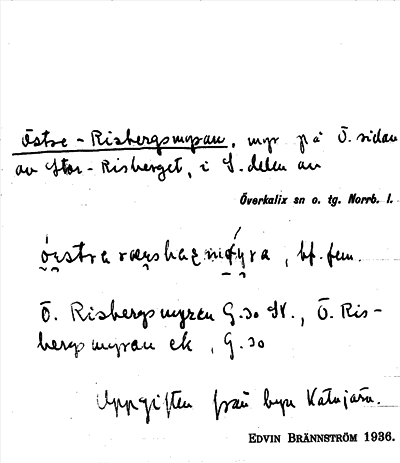 Östre-Risbergsmyran, myr på Ö. sidan
av Stor-Risberget, i S. delen av
Överkalix sn o. tg. Norrb. l.
, bf. fem.
Ö. Risbergsmyran G.30 St., Ö. Ris-
bergsmyran ek, G.30
Uppgiften från byn
EDVIN BRÄNNSTRÖM 1936.